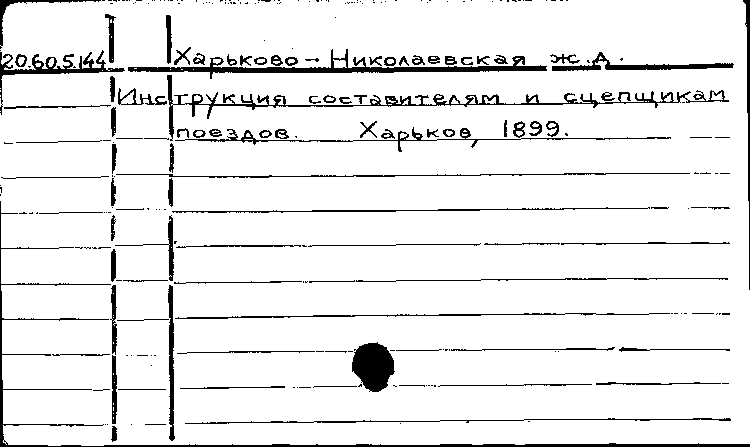 20.60.5.144 Харьково-Николаевская ж.д.
Инструкция составителям и сцепщикам
поездов. Харьков, 1899.